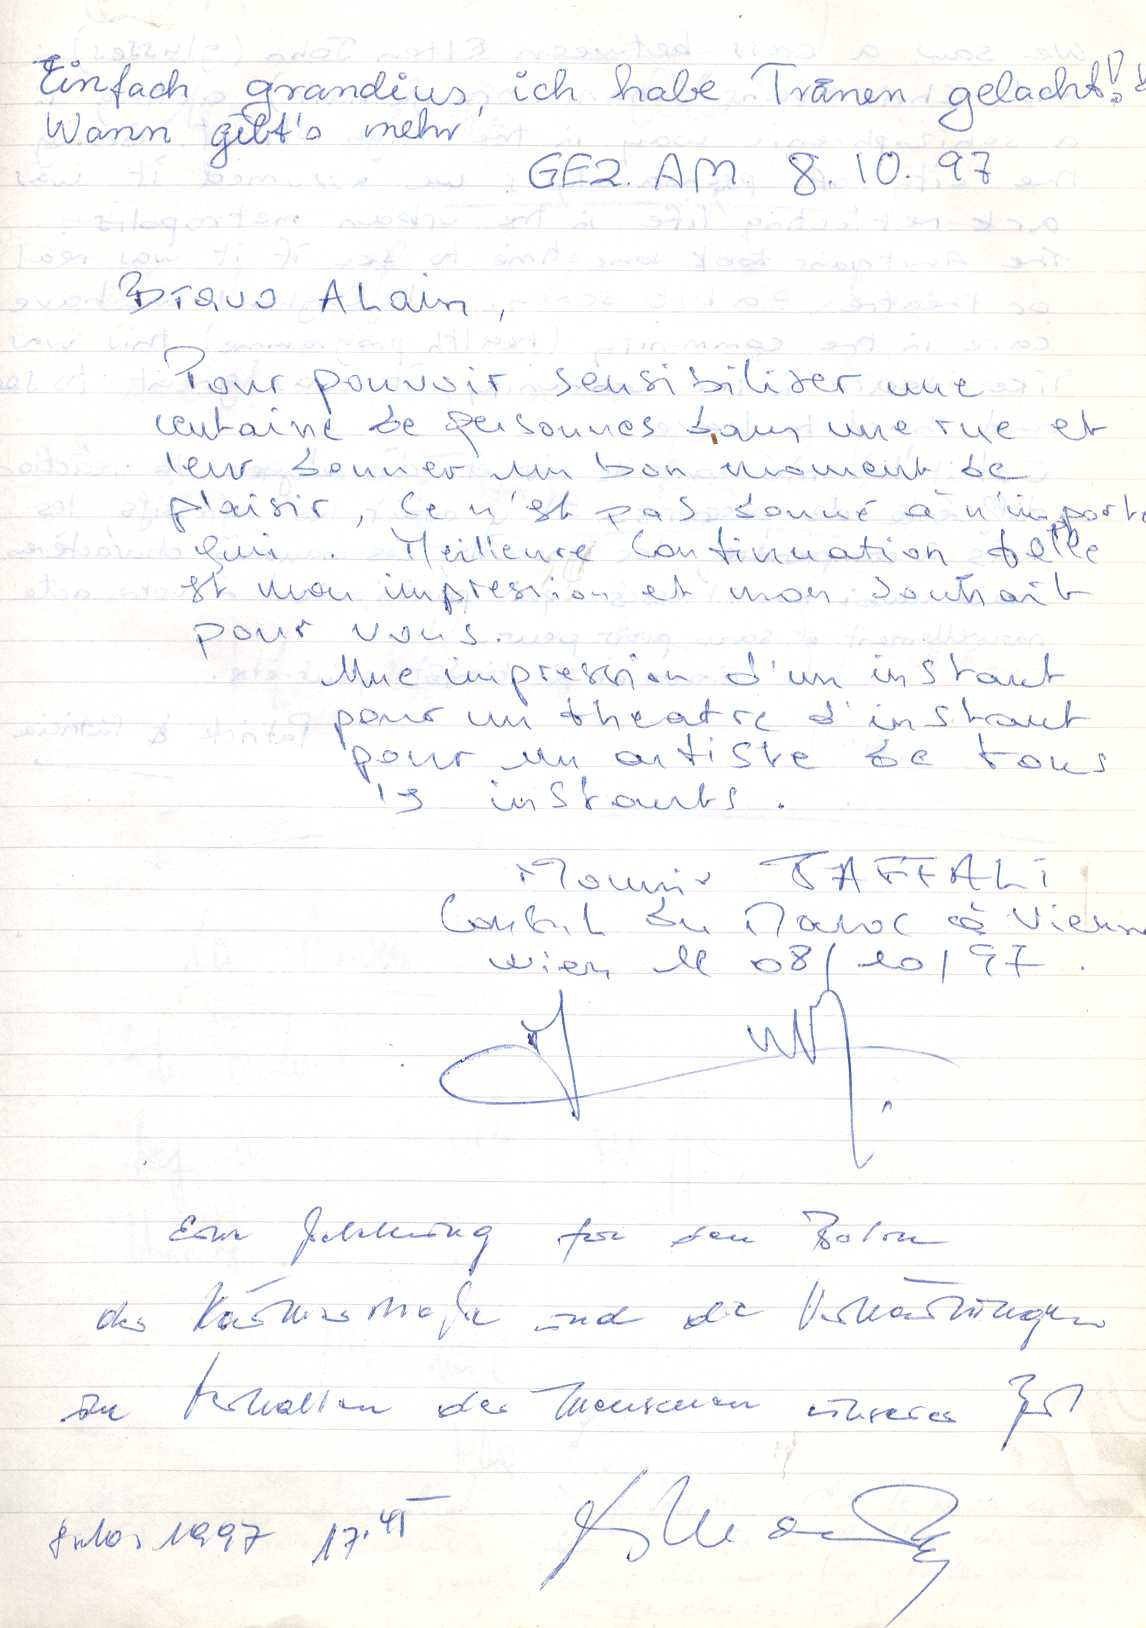 Einfach grandios, ich habe Tränen gelacht!!
Wann gibt's mehr
GEZ. AM 8.10.97
Bravo Alain,
Pour pouvoir sensibiliser une
centaine de personnes dans une rue et
leur donner un bon moment de
plaisir, ce n'est pas donné à n'importe
qui. Meilleure Continuation telle
est mon impression et mon souhait
pour vous.
Une impression d'un instant
pour un theatre d'instant
pour un artiste de tous
ls instants.
Mounir
Consul du Maroc à Vienne
Wien le 08/10/97.
Eine für den
der Kärtnerstraße und die
im Verhalten der Menschen unserer Zeit
1997 17.45